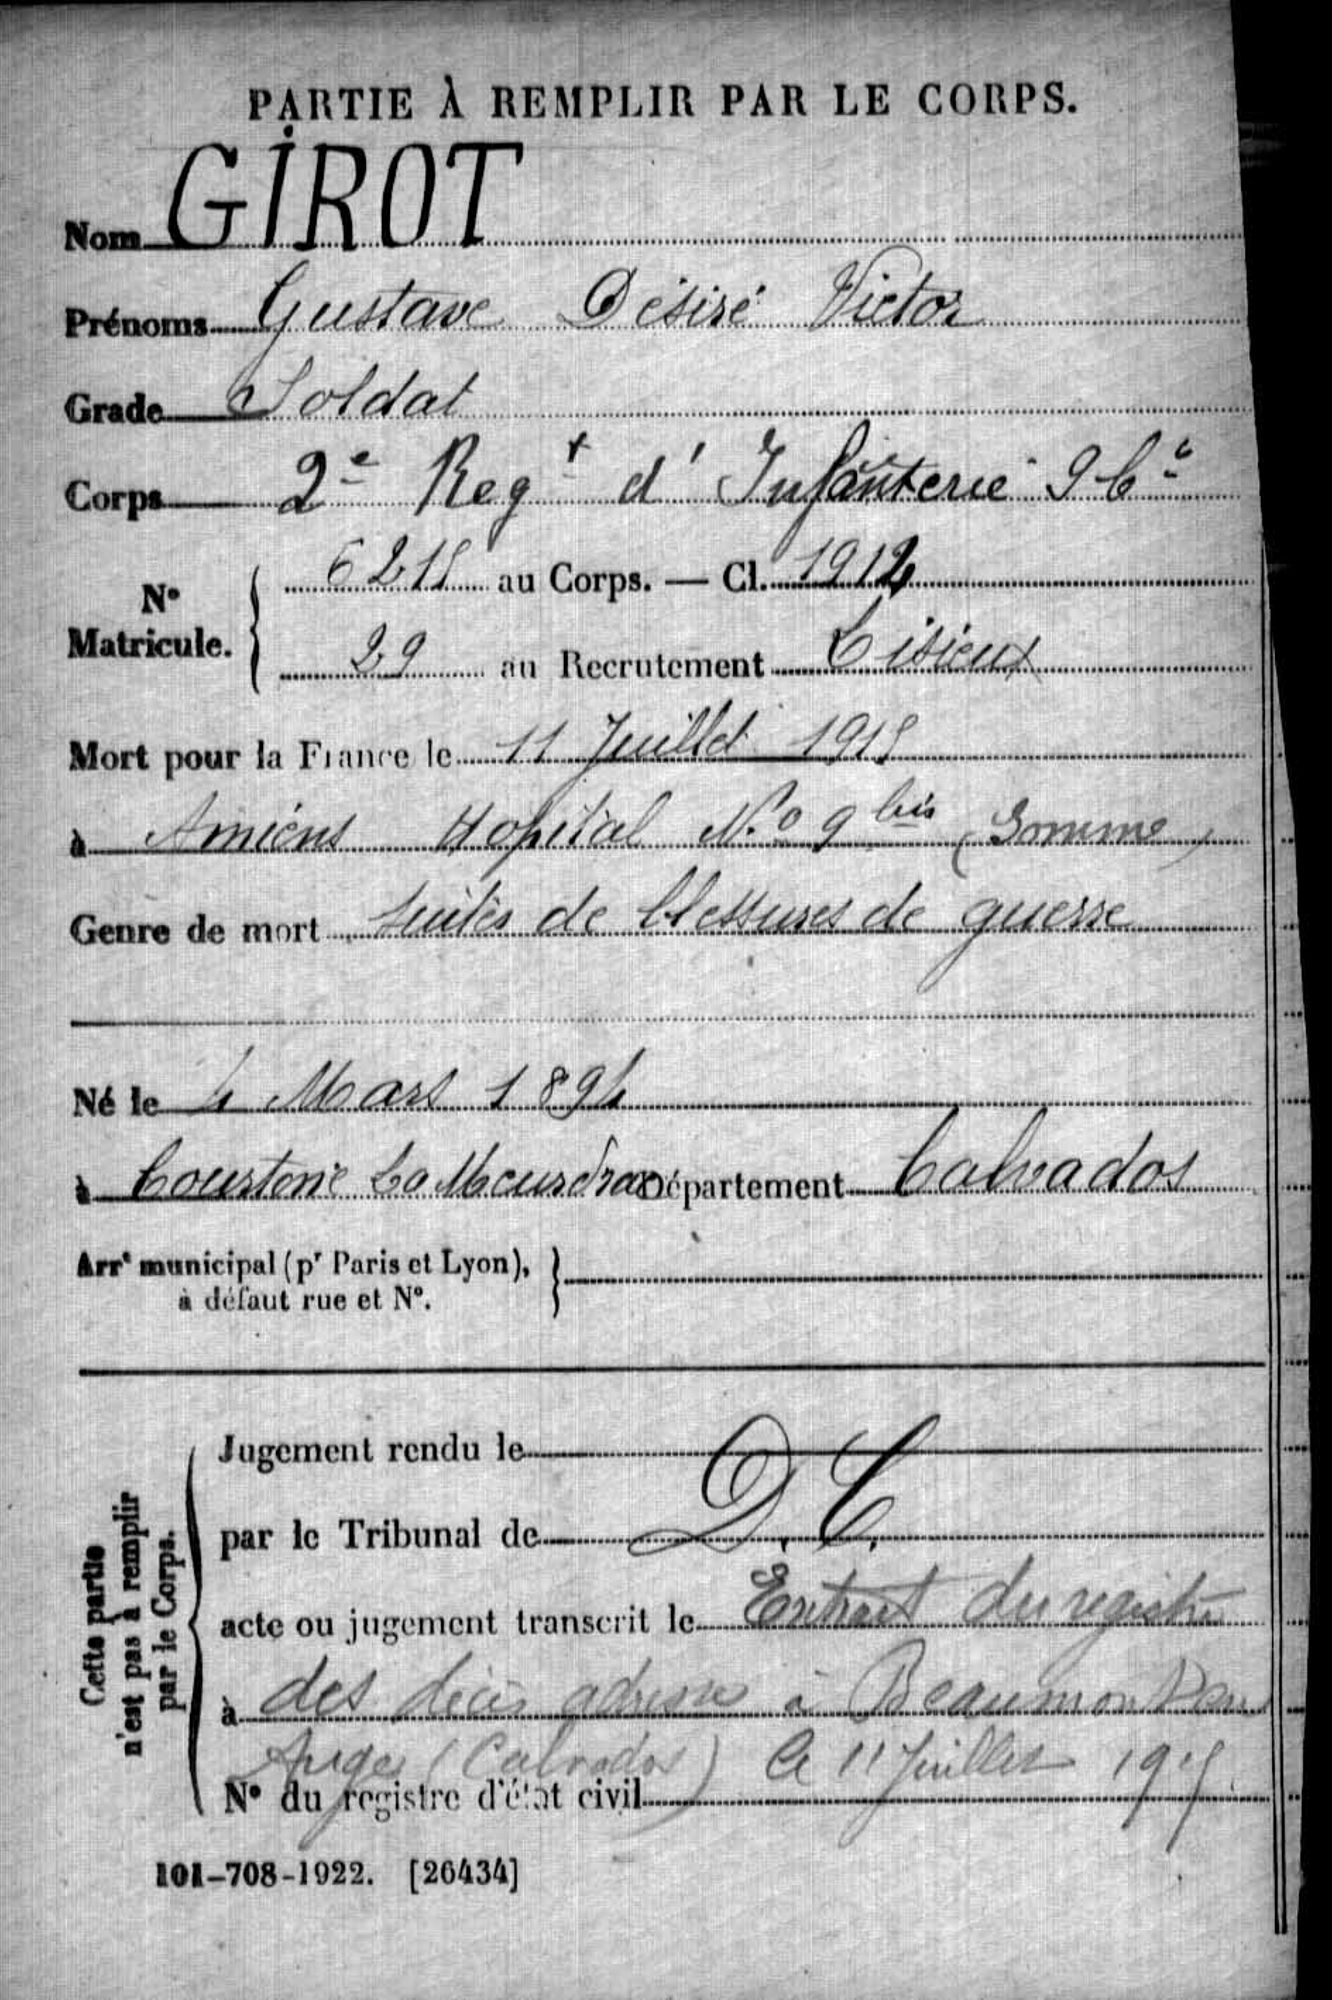 PARTIE À REMPLIR PAR LE CORPS.
Nom GIROT
Prénoms Gustave Désiré Victor
Grade Soldat
Corps 2e Regt d'Infanterie 9 Cie
N° Matricule. 6215 au Corps. — Cl. 1912
29 au Recrutement Lisieux
Mort pour la France le 11 Juillet 1915
à Amiens Hopital N.o 9 bis (Somme)
Genre de mort suites de blessures de guerre
Né le 4 Mars 1894
à Courtonne La Meurdrac Département Calvados
Arrt municipal (pr Paris et Lyon),
à défaut rue et N°.
Cette partie n'est pas à remplir par le Corps.
Jugement rendu le
par le Tribunal de D.C.
acte ou jugement transcrit le Extrait du registre
à des décès adressé à Beaumont en
Auge (Calvados) le 11 Juillet 1915.
N° du registre d'état civil
101-708-1922. [26434]